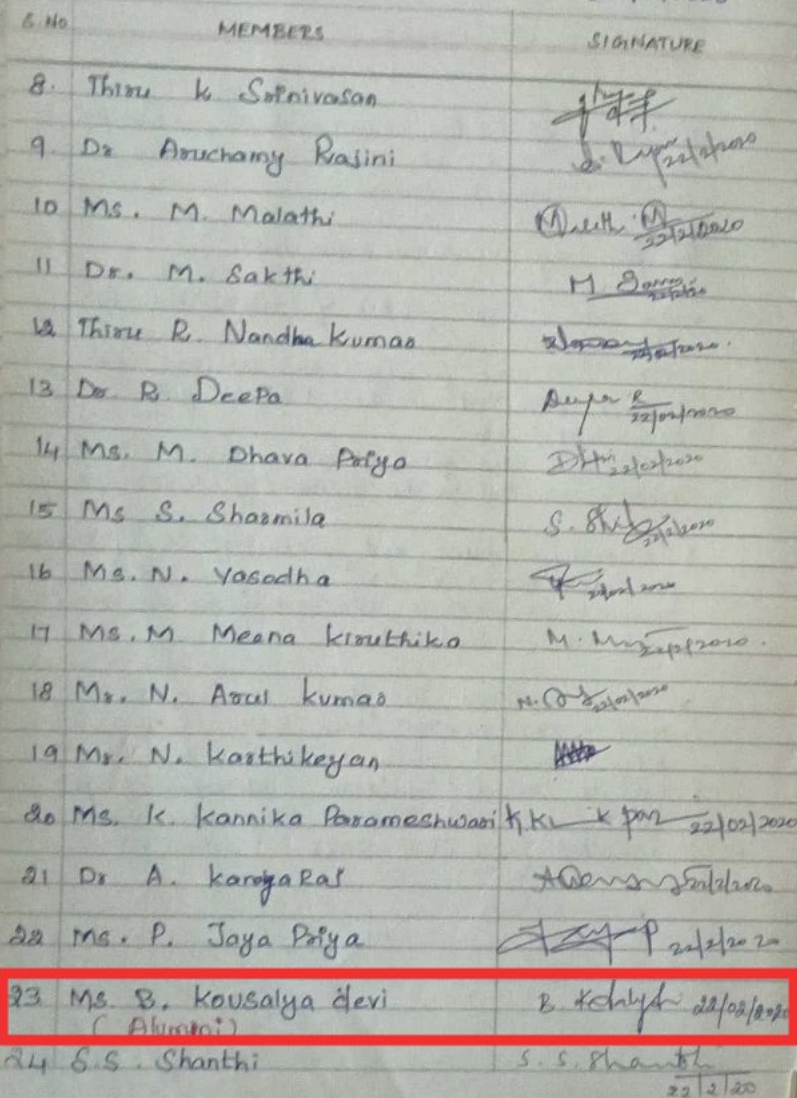 S. No MEMBERS SIGNATURE
8. Thiru K Srinivasan
9. Dr Aruchamy Rajini 22/2/2020
10 Ms. M. Malathi 22/2/2020
11 Dr. M. Sakthi M
12 Thiru R. Nandha Kumar
13 Dr R. Deepa R 22/02/2020
14 Ms. M. Dhava Priya 22/02/2020
15 Ms S. Sharmila S. 22/2/2020
16 Ms. N. Yasodha
17 Ms. M Meena Kiruthika M. 22/2/2020.
18 Mr. N. Arul Kumar N. 22/02/2020
19 Mr. N. Karthikeyan
20 Ms. K. Kannika Parameshwari 22/02/2020
21 Dr A.
22 Ms. P. Jaya Priya 22/2/2020
23 Ms. B. Kousalya devi B. 22/02/2020
(Alumini)
24 S.S. Shanthi S. S. Shanthi
22/2/20